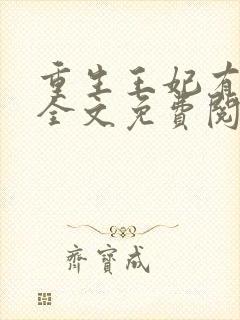 重生王妃有
全文免費閱
齊寶成